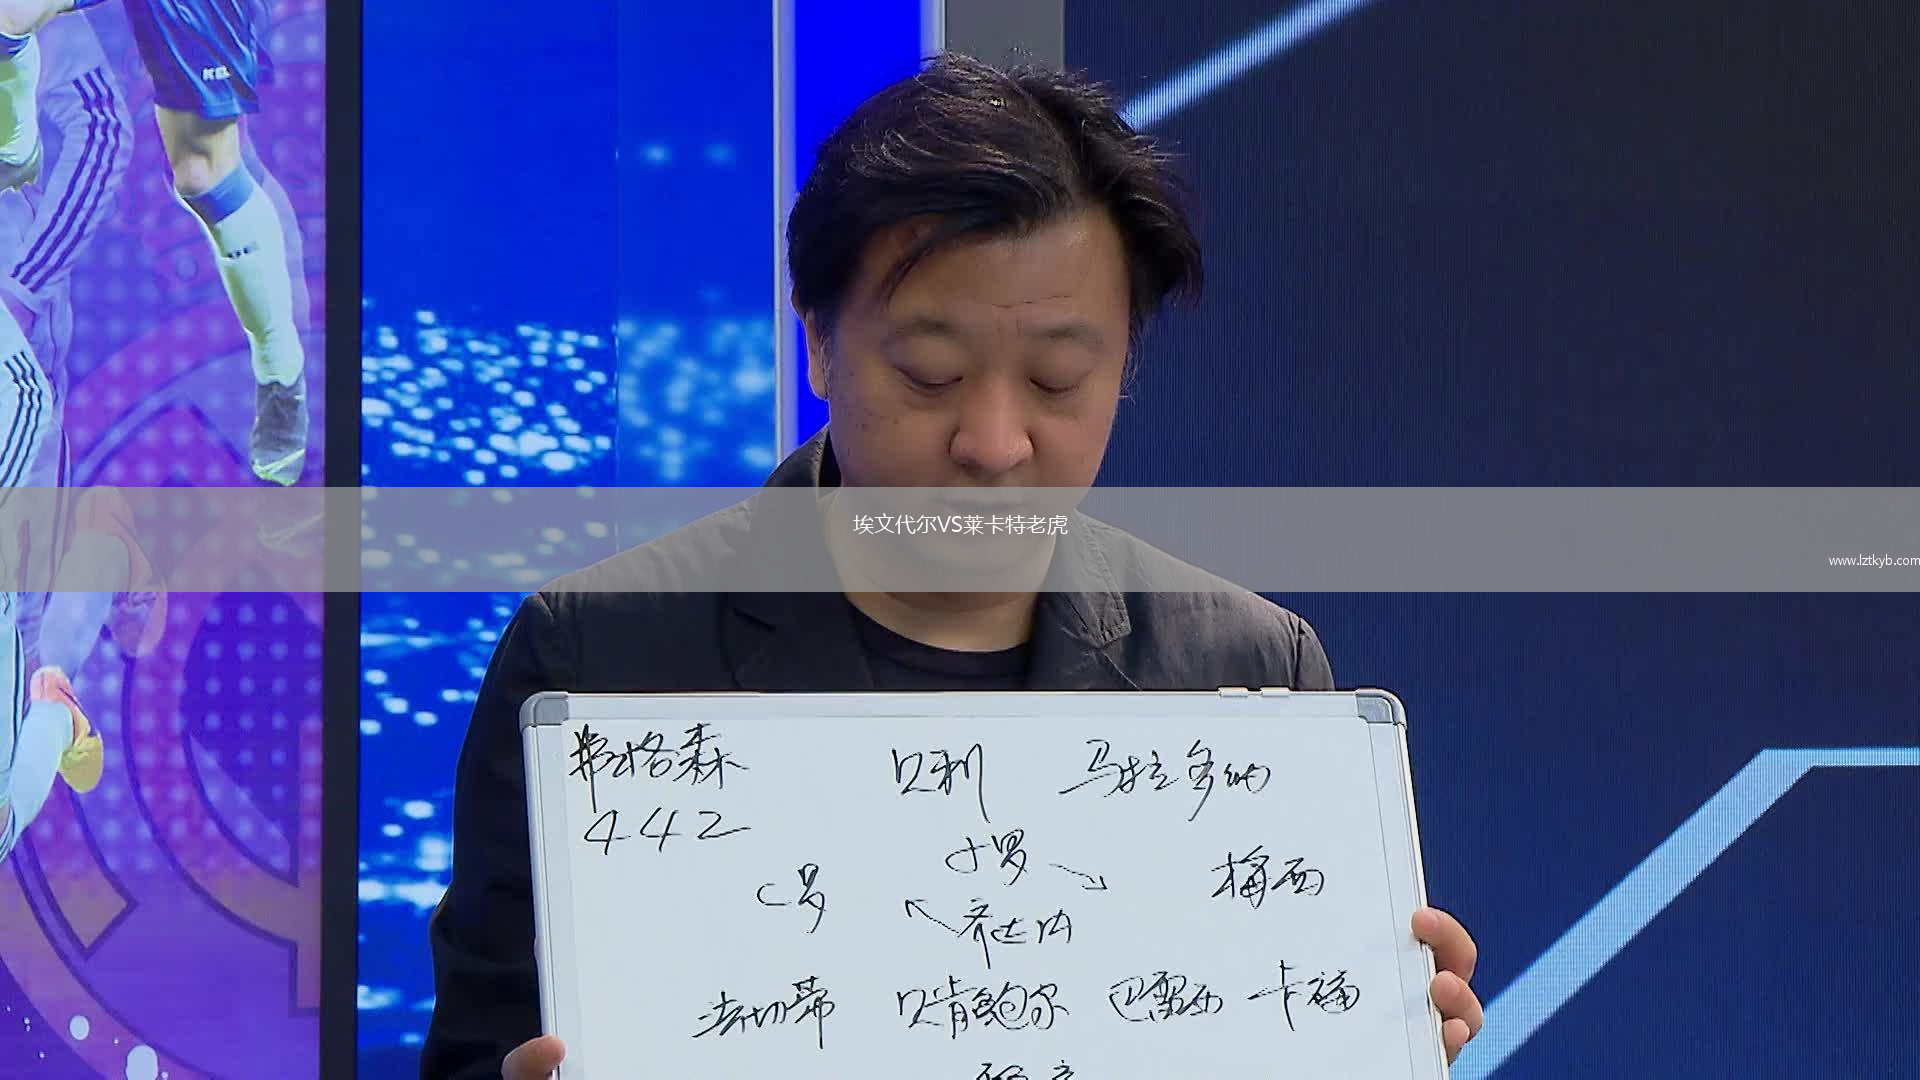 埃文代尔VS莱卡特老虎
www.lztkyb.com
弗格森 贝利 马拉多纳
442
小罗
C罗 梅西
齐达内
法切蒂 贝肯鲍尔 巴雷西 卡福